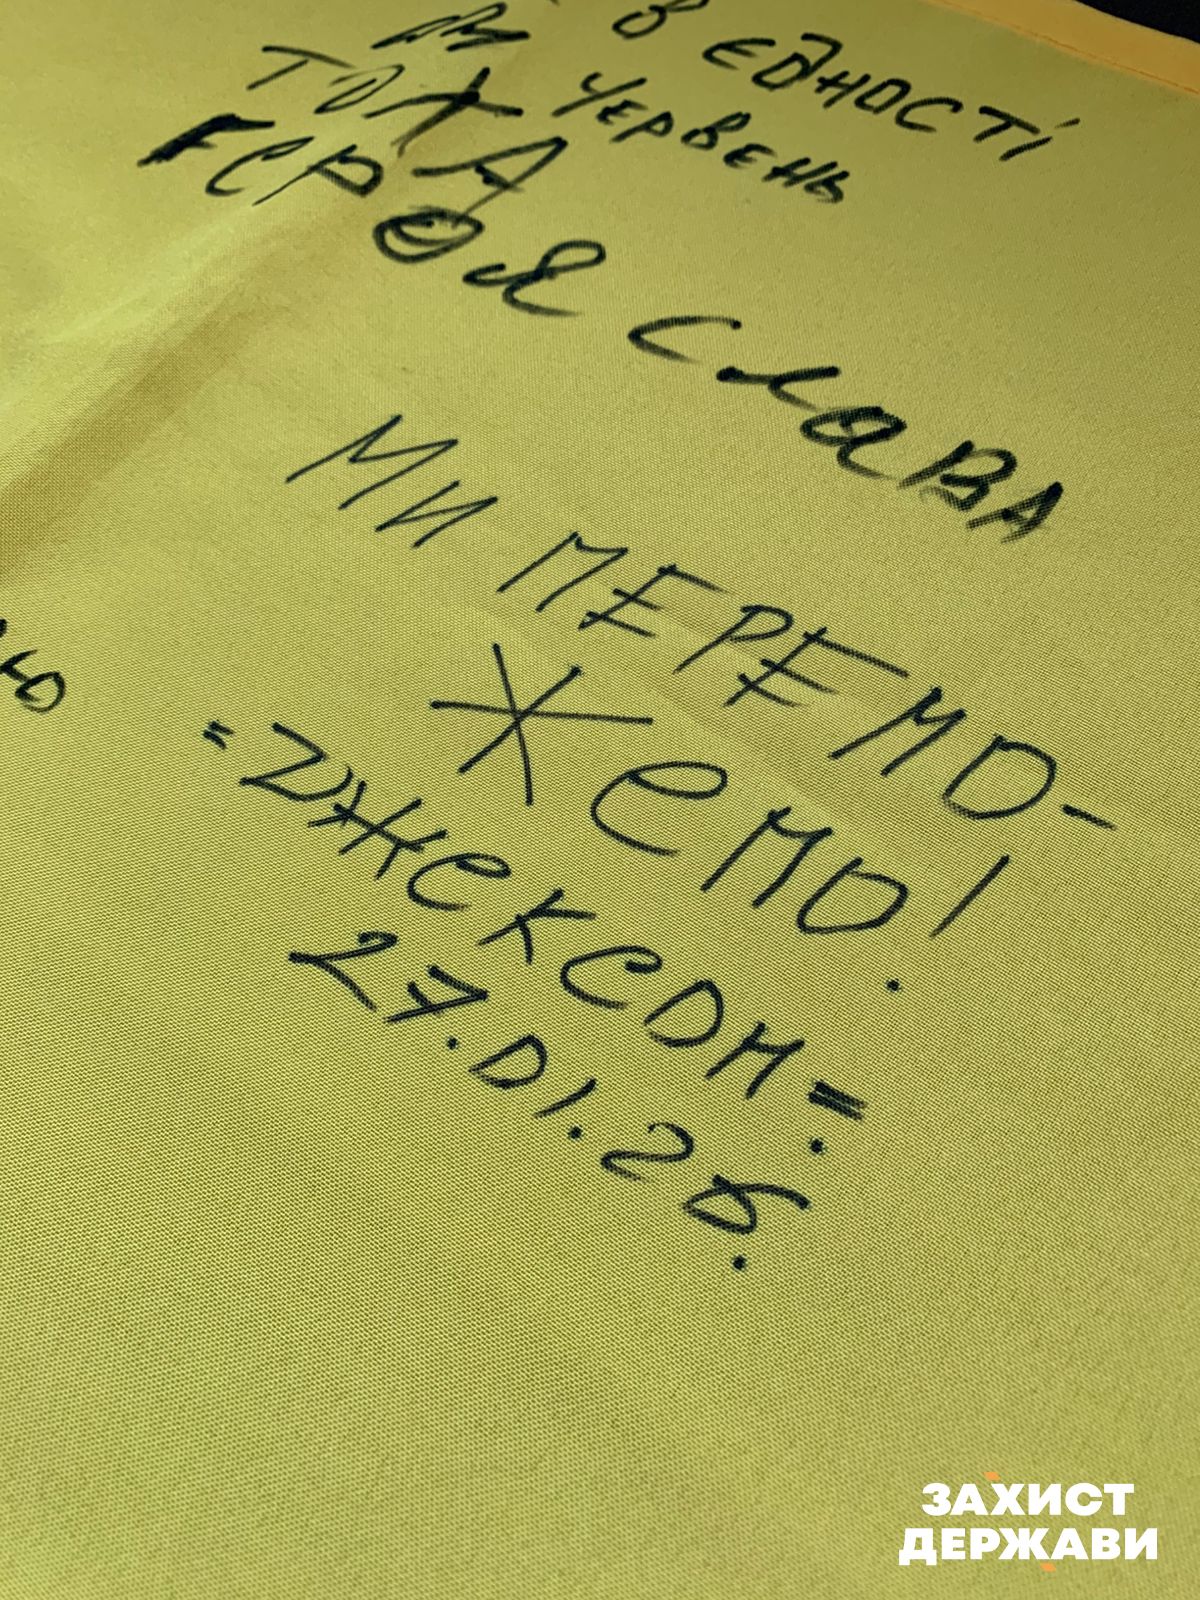 В ЄДНОСТІ
ЧЕРВЕНЬ
СЛАВА
МИ ПЕРЕМО-
ЖЕМО!
"ДЖЕКСОН"
27.01.26.
ЗАХИСТ
ДЕРЖАВИ